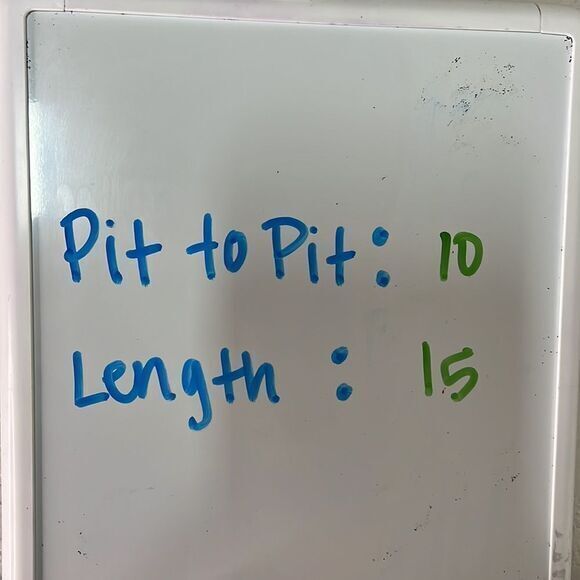 Pit to Pit: 10
Length : 15